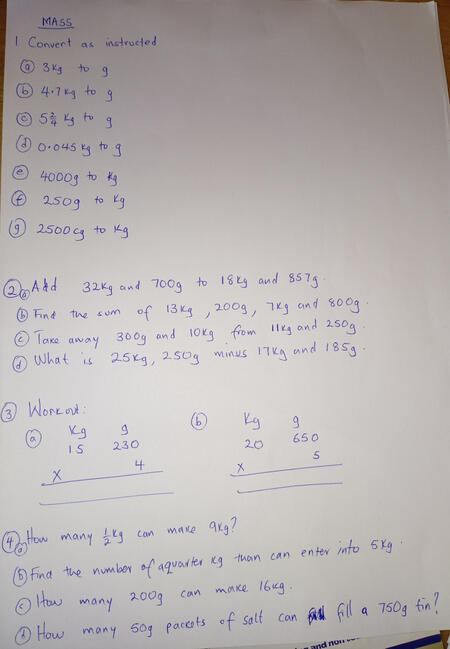 MASS
1 Convert as instructed
(a) 3kg to g
(b) 4.7kg to g
(c) 5 3/4 kg to g
(d) 0.045 kg to g
(e) 4000g to kg
(f) 250g to kg
(g) 2500cg to kg
(2)(a) Add 32kg and 700g to 18kg and 857g.
(b) Find the sum of 13kg, 200g, 7kg and 800g.
(c) Take away 300g and 10kg from 11kg and 250g.
(d) What is 25kg, 250g minus 17kg and 185g.
(3) Workout:
(a) Kg g (b) Kg g
15 230 20 650
x 4 x 5
(4)(a) How many 1/2 kg can make 9kg?
(b) Find the number of aquarter kg than can enter into 5kg.
(c) How many 200g can make 16kg.
(d) How many 50g packets of salt can fill a 750g tin?
and non